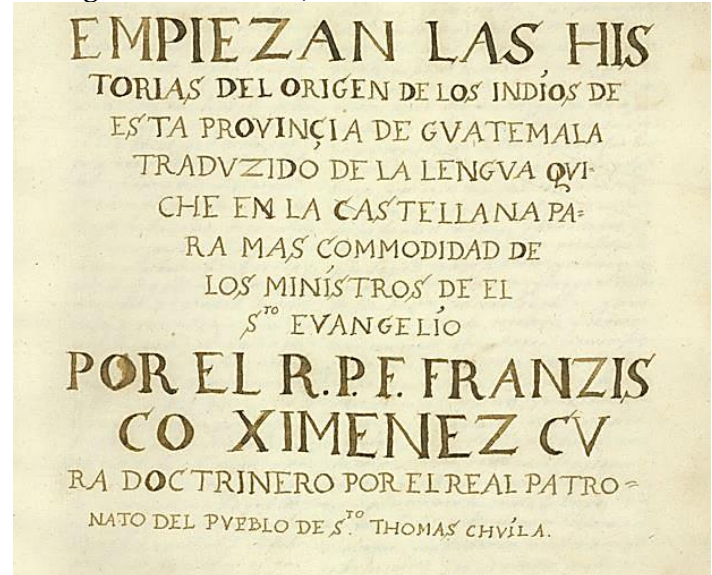 EMPIEZAN LAS HIS
TORIAS DEL ORIGEN DE LOS INDÍOS DE
ESTA PROVINÇIA DE GVATEMALA
TRADVZIDO DE LA LENGVA QVI-
CHE EN LA CASTELLANA PA=
RA MAS COMMODIDAD DE
LOS MINÍSTROS DE EL
S.TO EVANGELÍO
POR EL R.P.F. FRANZIS
CO XIMENEZ CV
RA DOCTRINERO POR EL REAL PATRO=
NATO DEL PVEBLO DE S.TO THOMAS CHVÍLA.